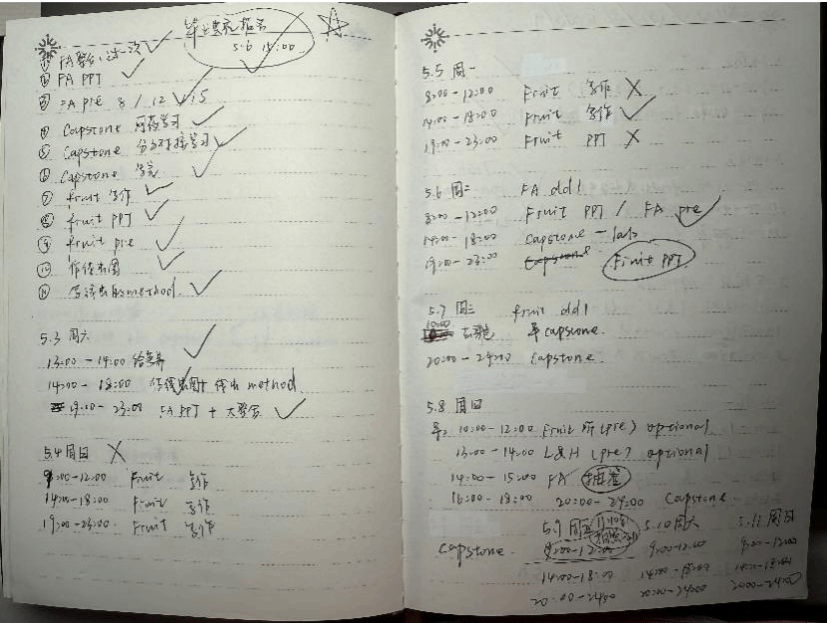 5.6 15:00
FA PPT
FA pre 8 / 12 / 15
Capstone 学习
Capstone 学习
Capstone
fruit 写作
fruit PPT
fruit pre
method
5.3 周六
13:00 - 14:00
14:00 - 18:00 method
19:00 - 23:00 FA PPT +
5.4 周日
9:00-12:00 Fruit 写作
14:00-18:00 Fruit 写作
19:00-23:00 Fruit 写作
5.5 周一
8:00-12:00 Fruit 写作
14:00-18:00 Fruit 写作
19:00-23:00 Fruit PPT
5.6 周二 FA ddl
8:00-12:00 Fruit PPT / FA pre
14:00-18:00 Capstone - lab
19:00-23:00 Capstone Fruit PPT
5.7 周三 fruit ddl
capstone.
20:00-24:00 Capstone.
5.8 周四
10:00-12:00 Fruit (pre) optional
13:00-14:00 L&H (pre) optional
14:00-15:00 FA
16:00-18:00 20:00-24:00 Capstone
5.9 周五 5.10 周六 5.11 周日
Capstone. 9:00-12:00 9:00-12:00 9:00-12:00
14:00-18:00 14:00-18:00 14:00-18:00
20:00-24:00 20:00-24:00 20:00-24:00